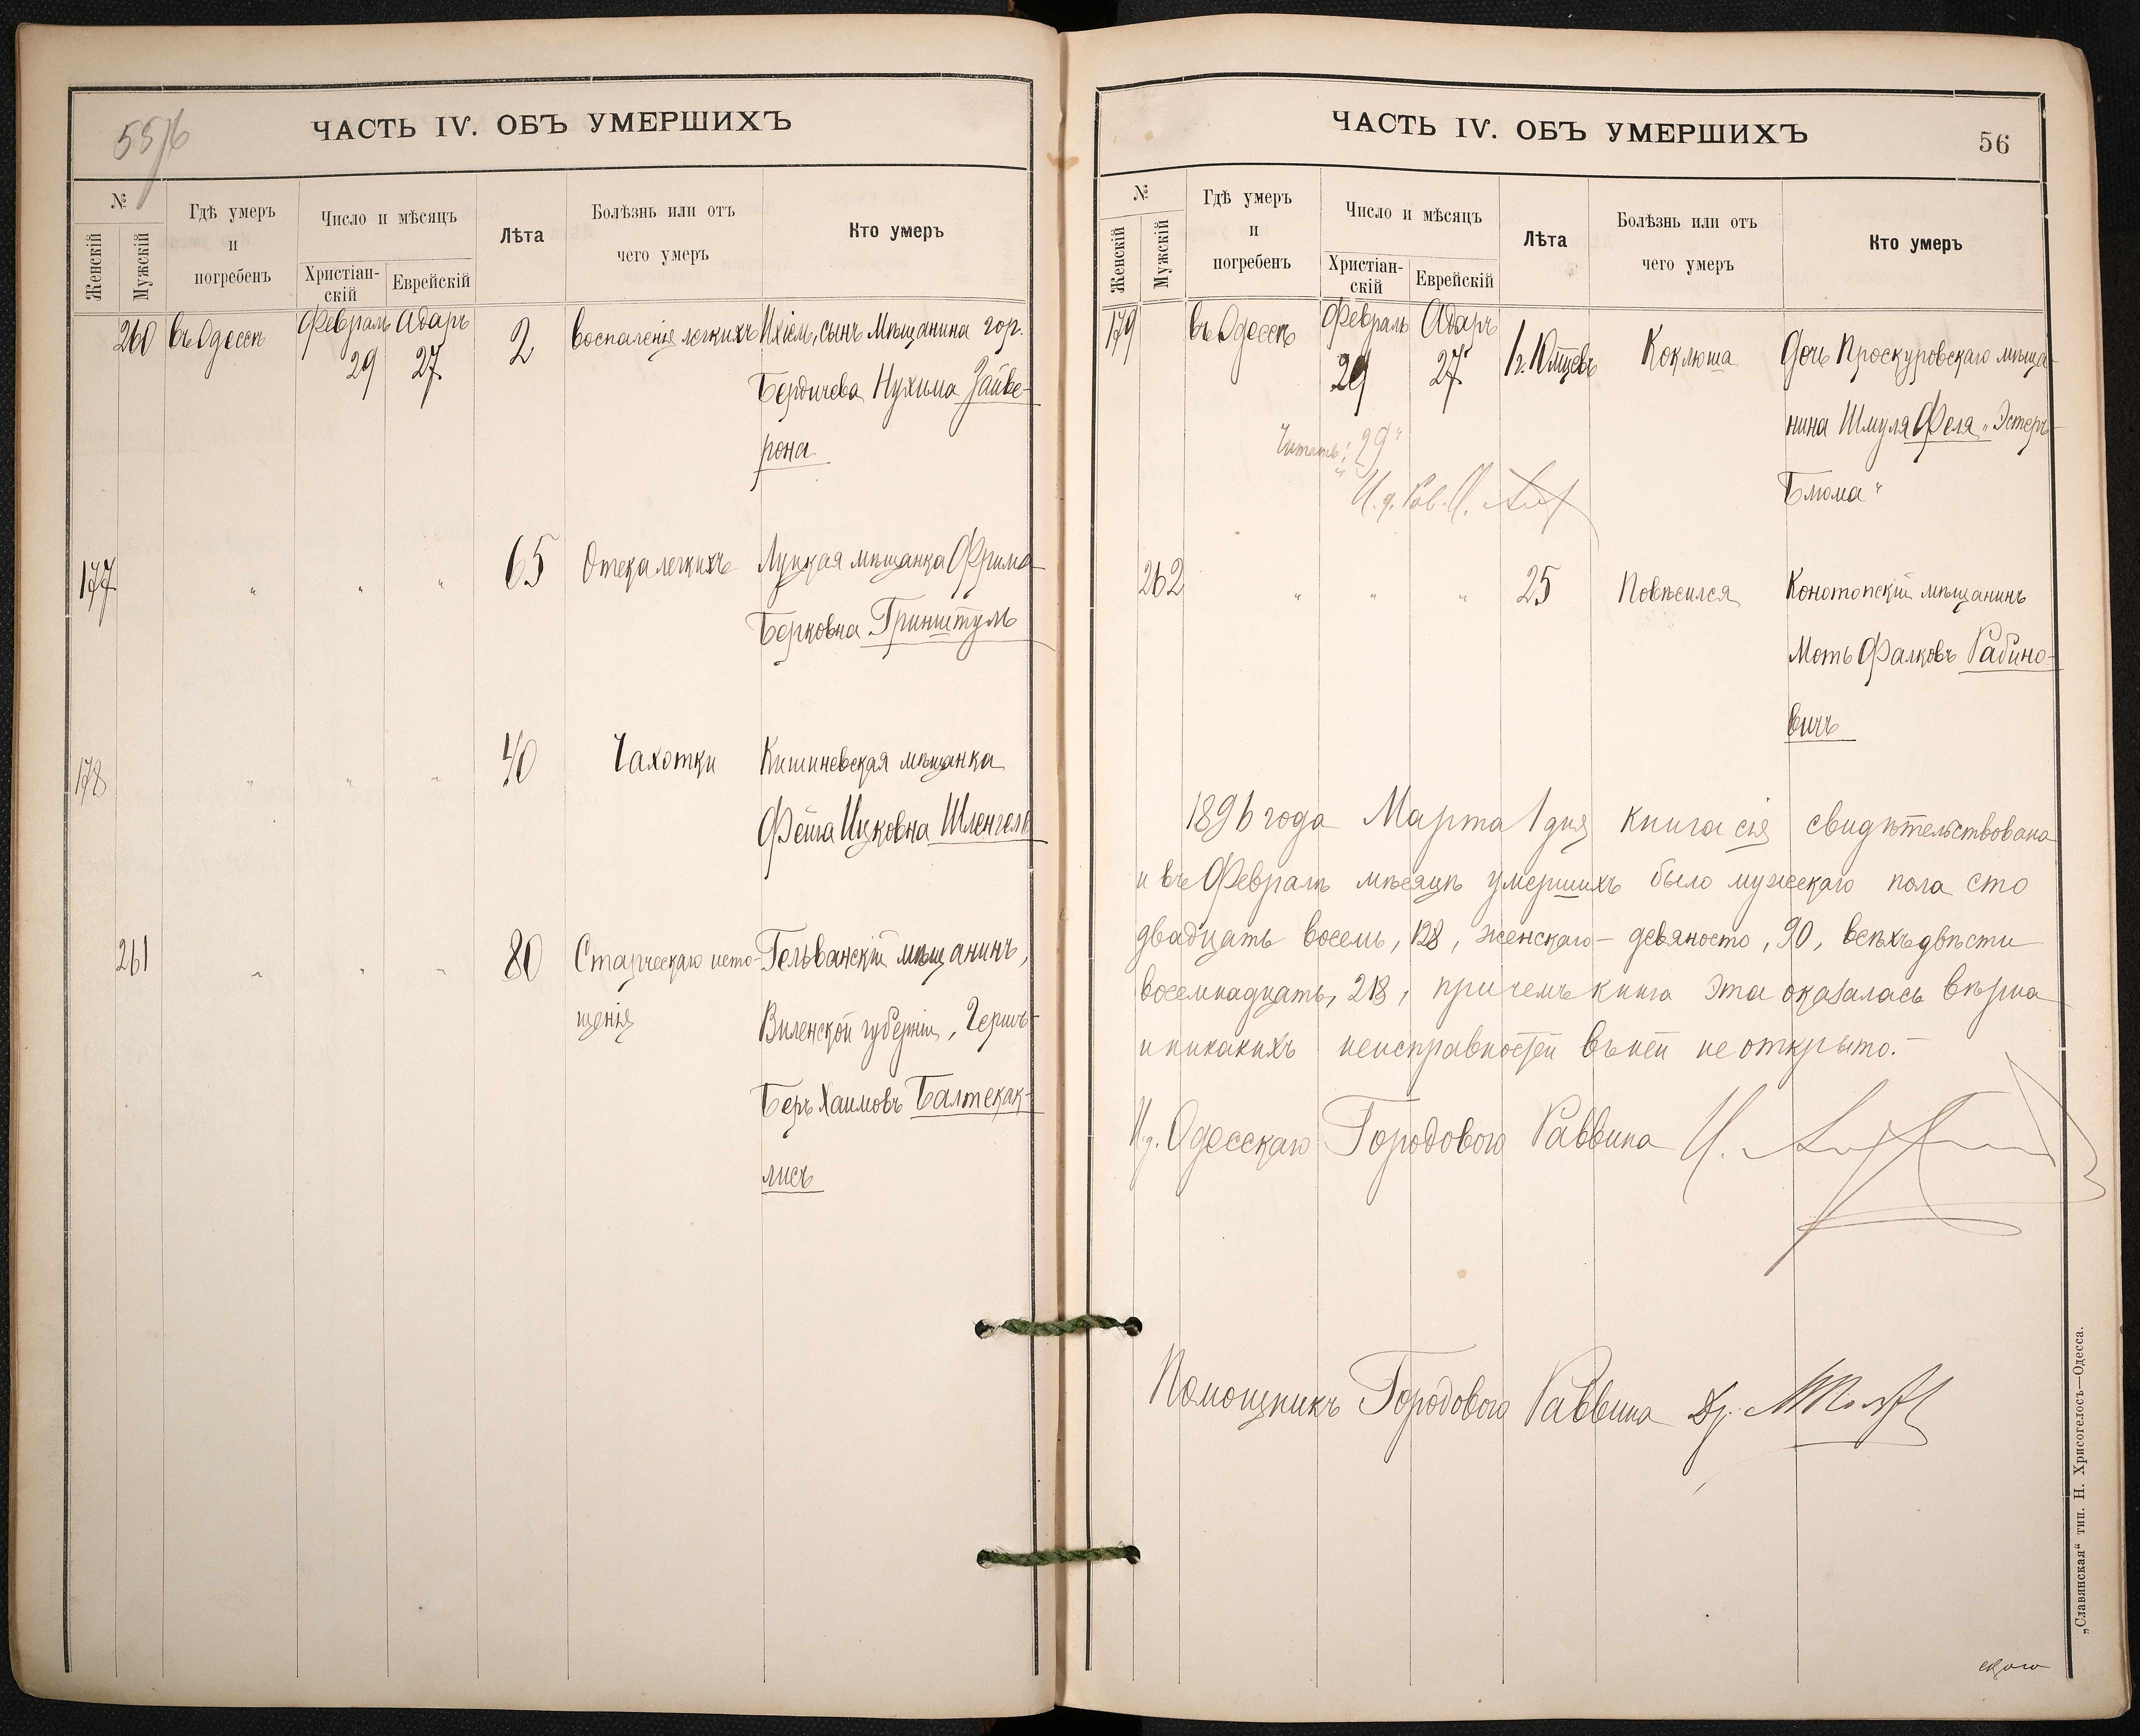 55/56
ЧАСТЬ IV. ОБЪ УМЕРШИХЪ
№
Женскій
Мужскій
Гдѣ умеръ
и
погребенъ
Число и мѣсяцъ
Христіан-
скій
Еврейскій
Лѣта
Болѣзнь или отъ
чего умеръ
Кто умеръ
260 въ Одессѣ Февраль Адаръ 2 воспаленія легкихъ Ихіел, сынъ мѣщанина гор.
29 27 Бердичева Нухима Зайве-
рона
177 " " " 65 Отека легкихъ Луцкая мѣщанка Фрима
Берковна Гринштулъ
178 " " " 40 Чахотки Кишиневская мѣщанка
Фейга Ицковна Шленгель
261 " " " 80 Старческаго исто- Гельванскій мѣщанинъ,
щенія Виленской губерніи, Гершъ-
Беръ Хаимовъ Балтекак-
лисъ
ЧАСТЬ IV. ОБЪ УМЕРШИХЪ
56
№
Женскій
Мужскій
Гдѣ умеръ
и
погребенъ
Число и мѣсяцъ
Христіан-
скій
Еврейскій
Лѣта
Болѣзнь или отъ
чего умеръ
Кто умеръ
179 въ Одессѣ Февраль Адаръ 1 г. Коклюша Дочь Проскуровскаго мѣща-
29 27 нина Шмуля Феля „Эстеръ-
Читать: „29"
Блюма"
И. д. Рав. И.
262 " " " 25 Повѣсился Конотопскій мѣщанинъ
Моть Фалковъ Рабино-
вичъ
1896 года Марта 1 дня книга сія свидѣтельствована
и въ Февралѣ мѣсяцѣ умершихъ было мужескаго пола сто
двадцать восемь, 128, женскаго – девяносто, 90, всѣхъ двѣсти
восемнадцать, 218, причемъ книга эта оказалась вѣрна
и никакихъ неисправностей въ ней не открыто. –
И. д. Одесскаго Городового Раввина И.
Помощникъ Городового Раввина Др.
„Славянская" тип. Н. Хрисогелосъ—Одесса.